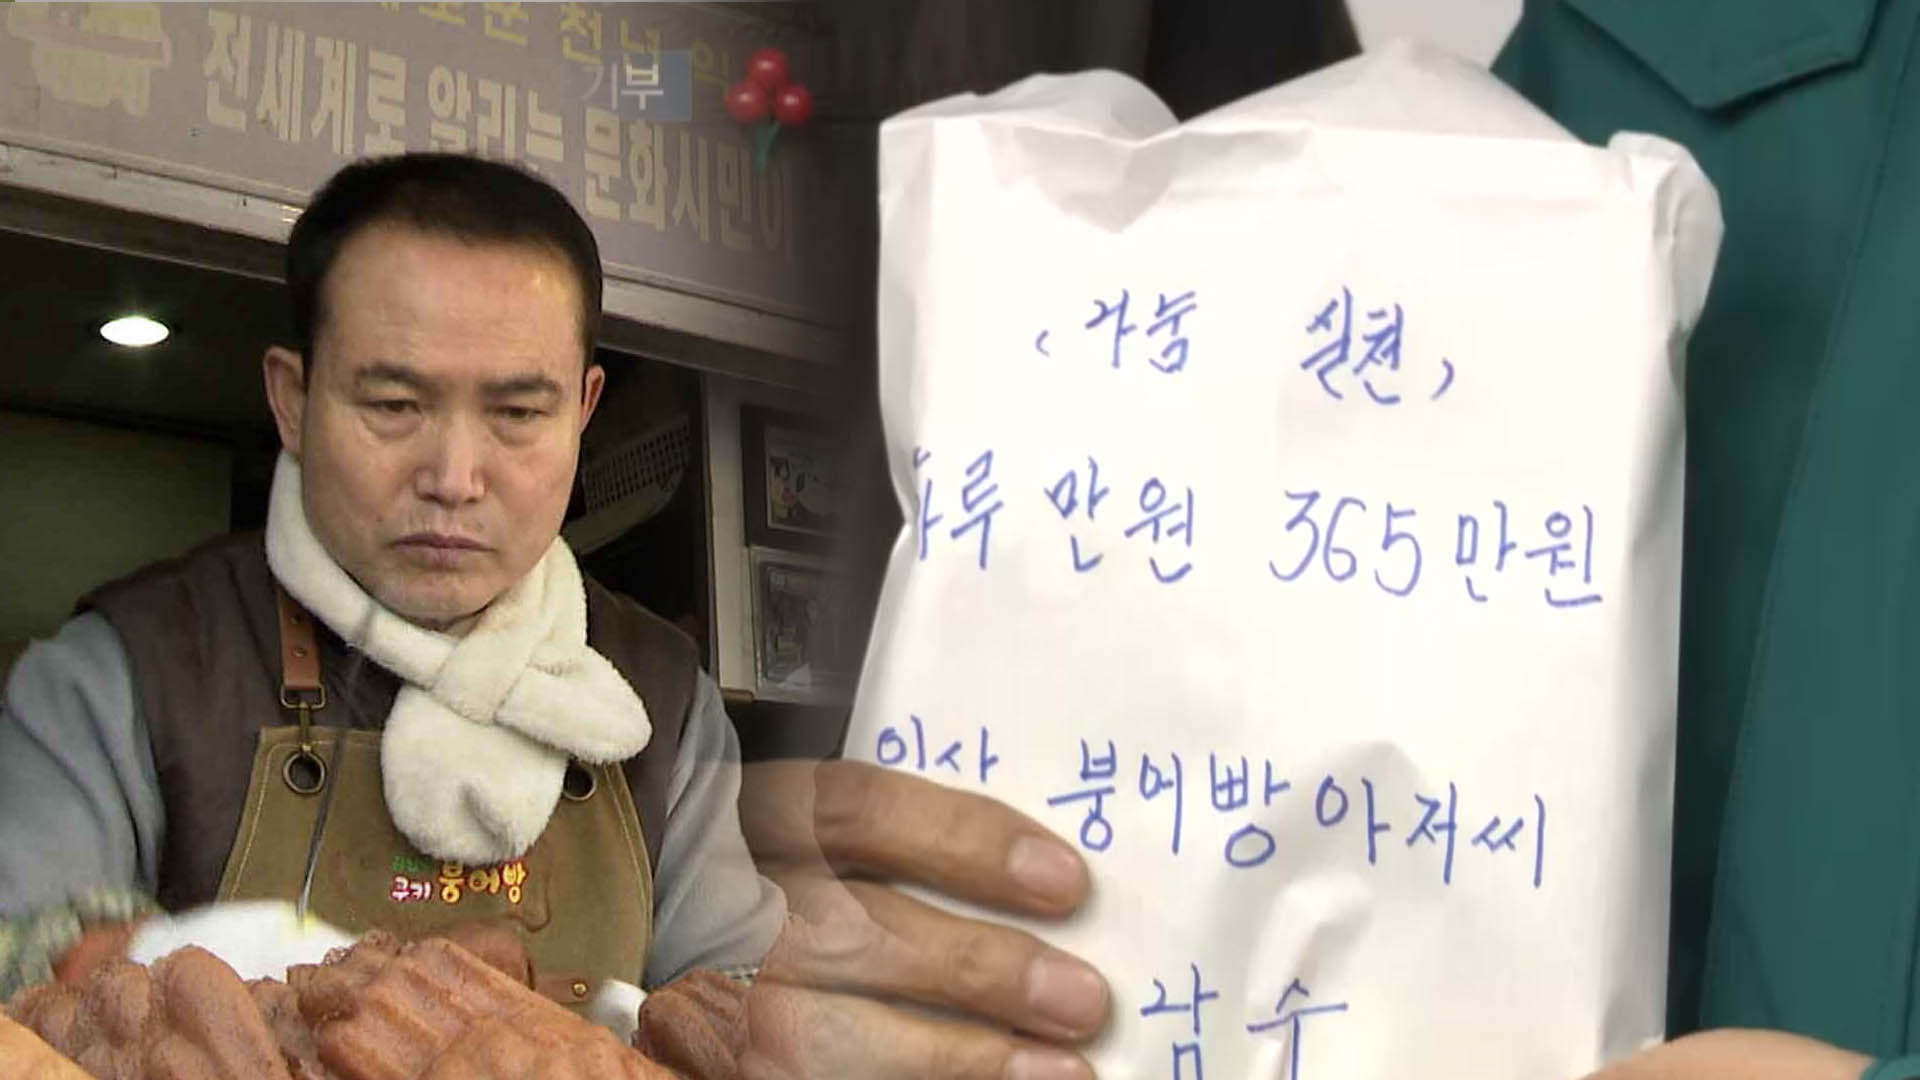 전세계로 알리는 문화시민이
기부
쿠키 붕어빵
< 나눔 실천 >
하루 만원 365만원
이사 붕어빵아저씨
남수